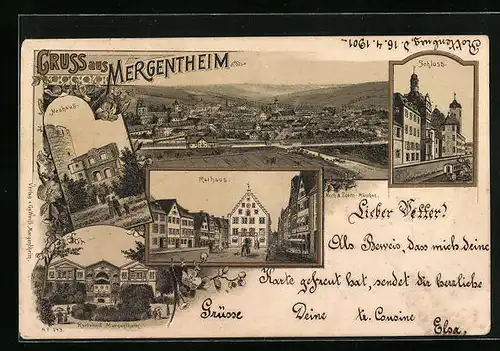 Gruss aus
Mergentheim
Rothenburg d. 16.4.1901.
Schloss.
Neuhaus.
Rathaus.
Lieber Vetter!
Als Beweis, dass mich deine
Karte gefreut hat, sendet dir herzliche
Grüsse Deine tr. Cousine
Elsa.
Karlsbad Mergentheim.